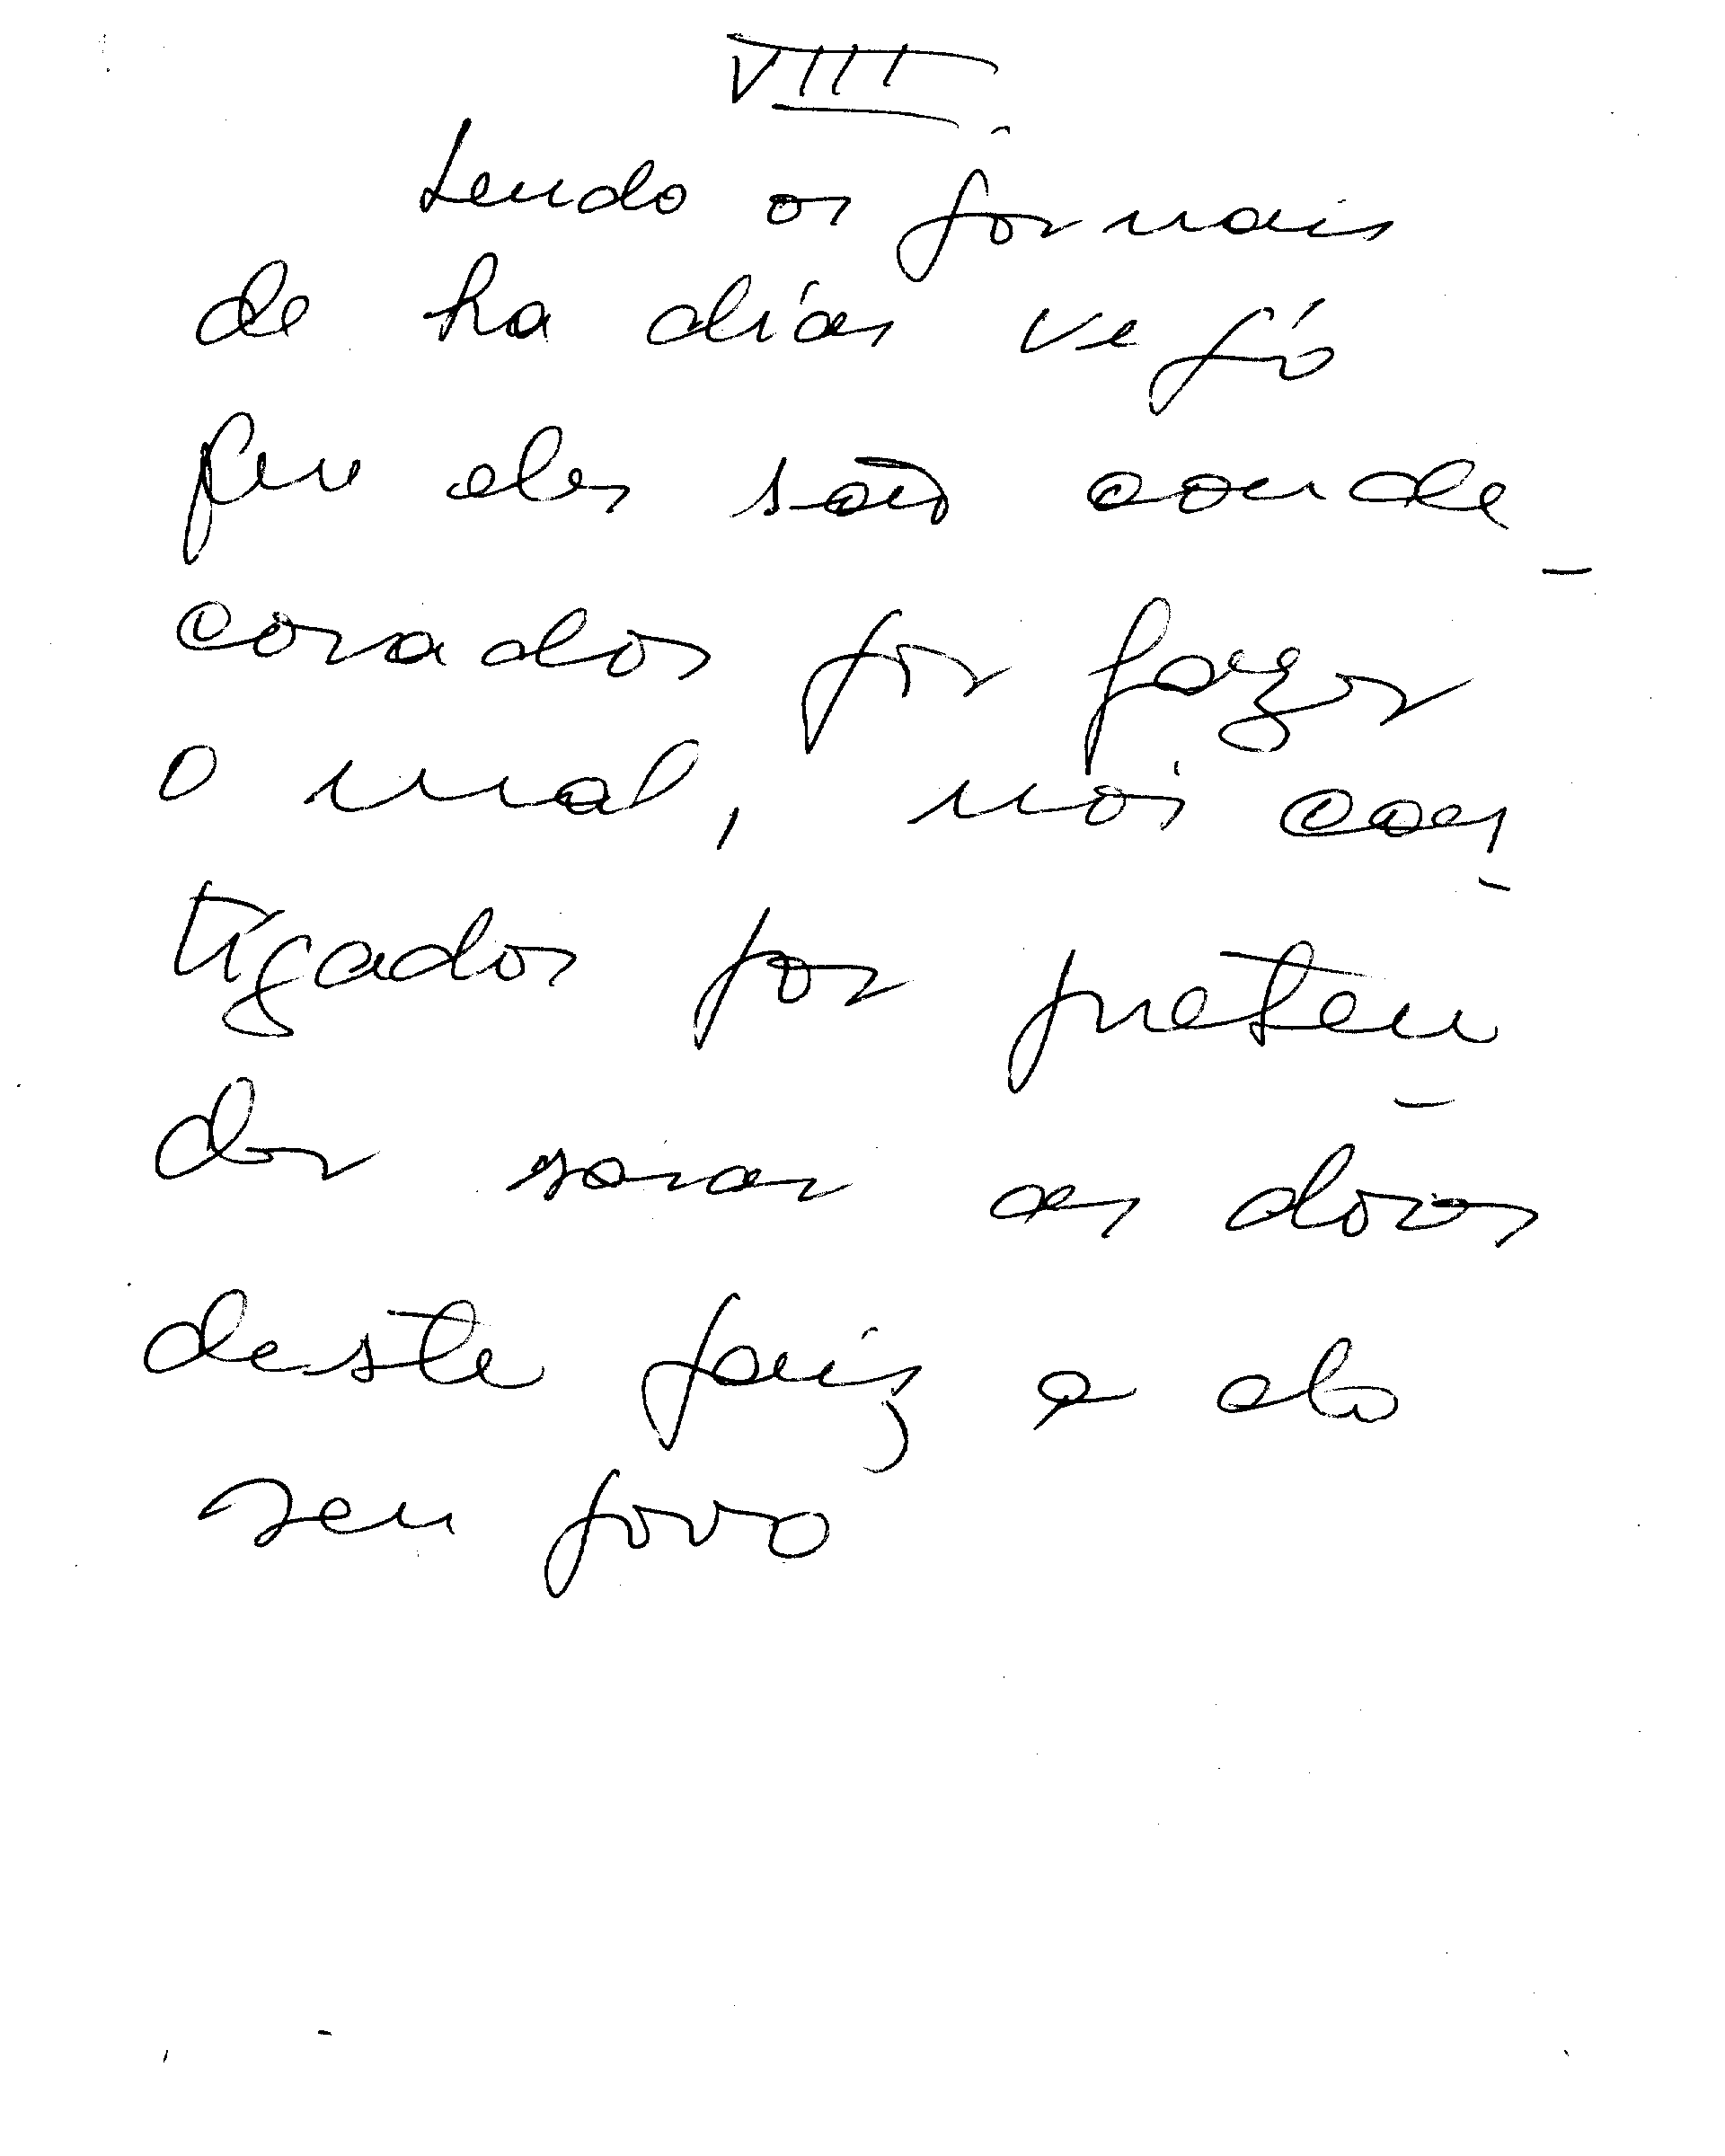 VIII
Lendo os jornais
de ha días vejo
que eles são conde-
corados por fazer
o mal, nós cas-
tigados por preten-
der sarar as dores
deste país, e do
seu povo